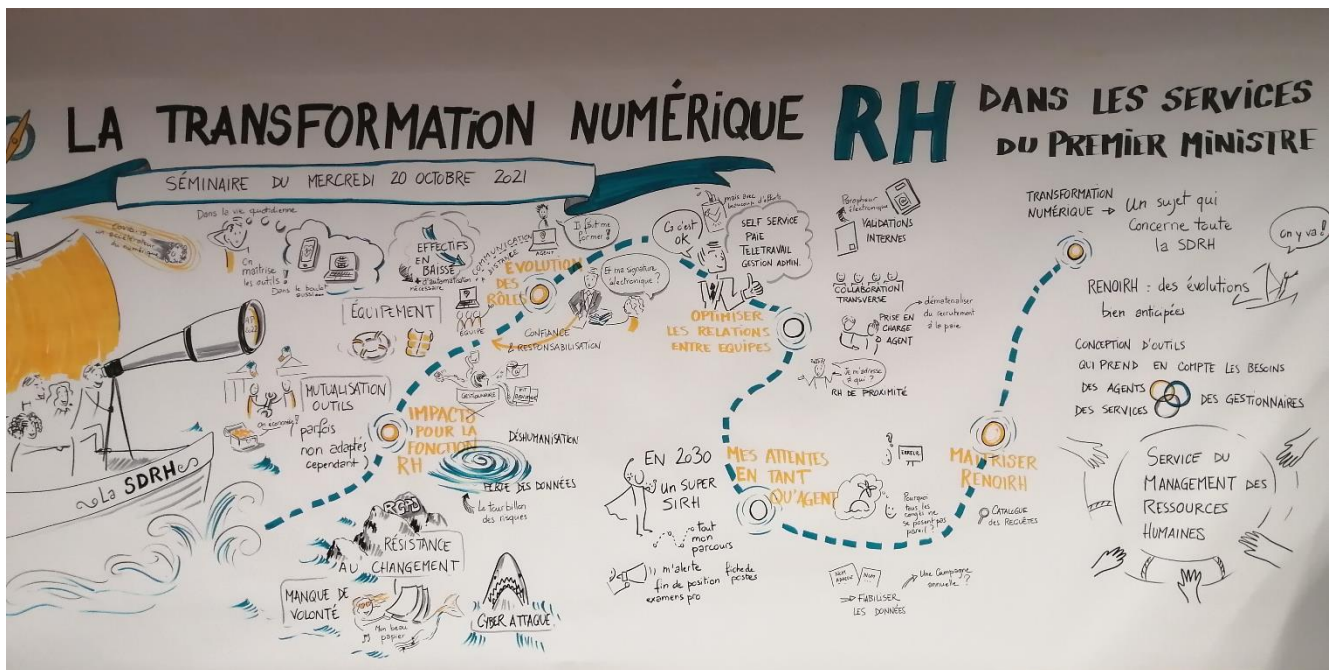 LA TRANSFORMATION NUMÉRIQUE RH DANS LES SERVICES
DU PREMIER MINISTRE
SÉMINAIRE DU MERCREDI 20 OCTOBRE 2021
numérique
La SDRH
Dans la vie quotidienne
On
maîtrise
les outils !
Dans le boulot
aussi...
EFFECTIFS
EN
BAISSE
+ d'automatisation
nécessaire
ÉQUIPEMENT
MUTUALISATION
OUTILS
parfois
non adaptés
cependant
On économise ?
COMMUNICATION
DISTANCE
AGENT
Il faut me
former !
ÉVOLUTION
DES
RÔLES
ÉQUIPE
Et ma signature
électronique ?
CONFIANCE
& RESPONSABILISATION
GESTIONNAIRE
IMPACTS
POUR LA
FONCTION
RH
DÉSHUMANISATION
PERTE DES DONNÉES
Le tourbillon
des risques
RGPD
RÉSISTANCE
AU CHANGEMENT
MANQUE DE
VOLONTÉ
Mon beau
papier
CYBER ATTAQUE
Ca c'est
OK
mais avec
beaucoup d'efforts
SELF SERVICE
PAIE
TÉLÉTRAVAIL
GESTION ADMIN.
OPTIMISER
LES RELATIONS
ENTRE EQUIPES
Parapheur
électronique
VALIDATIONS
INTERNES
COLLABORATION
TRANSVERSE
PRISE EN
CHARGE
AGENT
dématérialiser
du recrutement
à la paie
Je m'adresse
à qui ?
RH DE PROXIMITÉ
EN 2030
un SUPER
SIRH
tout
mon
parcours
m'alerte
fin de position
examens pro
fiche de
postes
MES ATTENTES
EN TANT
QU'AGENT
ERREUR
Pourquoi
tous les
congés ne
se posent pas
pareil ?
FIABILISER
LES DONNÉES
Une Campagne
annuelle ?
MAÎTRISER
RENOIRH
CATALOGUE
des REQUÊTES
TRANSFORMATION
NUMÉRIQUE
Un sujet qui
Concerne toute
la SDRH
On y va !
RENOIRH : des évolutions
bien anticipées
CONCEPTION D'OUTILS
QUI PREND EN COMPTE LES BESOINS
DES AGENTS
DES SERVICES
DES GESTIONNAIRES
SERVICE DU
MANAGEMENT DES
RESSOURCES
HUMAINES